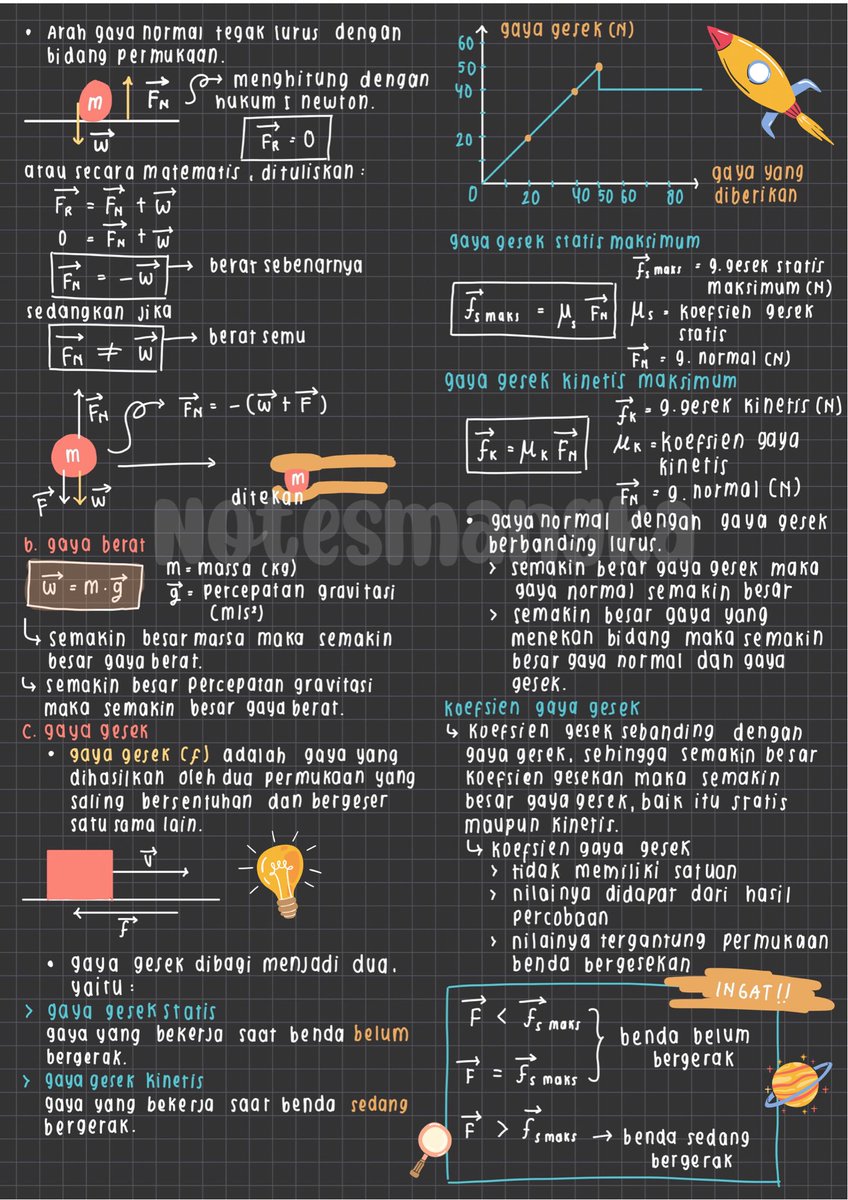 • Arah gaya normal tegak lurus dengan
bidang permukaan.
m
F→N
w→
menghitung dengan
hukum 1 newton.
F→R = 0
atau secara matematis, dituliskan :
F→R = F→N + w→
0 = F→N + w→
F→N = - w→ → berat sebenarnya
sedangkan jika
F→N ≠ w→ → berat semu
F→N
F→N = -(w→ + F→)
m
F→
w→
m
ditekan
b. gaya berat
w→ = m . g→
m = massa (kg)
g→ = percepatan gravitasi
(m/s²)
↳ semakin besar massa maka semakin
besar gaya berat.
↳ semakin besar percepatan gravitasi
maka semakin besar gaya berat.
c. gaya gesek
• gaya gesek (f) adalah gaya yang
dihasilkan oleh dua permukaan yang
saling bersentuhan dan bergeser
satu sama lain.
v→
f→
• gaya gesek dibagi menjadi dua,
yaitu :
> gaya gesek statis
gaya yang bekerja saat benda belum
bergerak.
> gaya gesek kinetis
gaya yang bekerja saat benda sedang
bergerak.
gaya gesek (N)
60
50
40
20
0
20
40
50
60
80
gaya yang
diberikan
gaya gesek statis maksimum
f→s maks = μs F→N
f→s maks = g. gesek statis
maksimum (N)
μs = koefsien gesek
statis
F→N = g. normal (N)
gaya gesek kinetis maksimum
f→K = μK F→N
f→K = g. gesek kinetis (N)
μK = koefsien gaya
kinetis
F→N = g. normal (N)
• gaya normal dengan gaya gesek
berbanding lurus.
> semakin besar gaya gesek maka
gaya normal semakin besar
> semakin besar gaya yang
menekan bidang maka semakin
besar gaya normal dan gaya
gesek.
koefsien gaya gesek
↳ koefsien gesek sebanding dengan
gaya gesek, sehingga semakin besar
koefsien gesekan maka semakin
besar gaya gesek, baik itu statis
maupun kinetis.
↳ koefsien gaya gesek
> tidak memiliki satuan
> nilainya didapat dari hasil
percobaan
> nilainya tergantung permukaan
benda bergesekan
INGAT!!
F→ < f→s maks
F→ = f→s maks
benda belum
bergerak
F→ > f→s maks → benda sedang
bergerak
Notesmangka